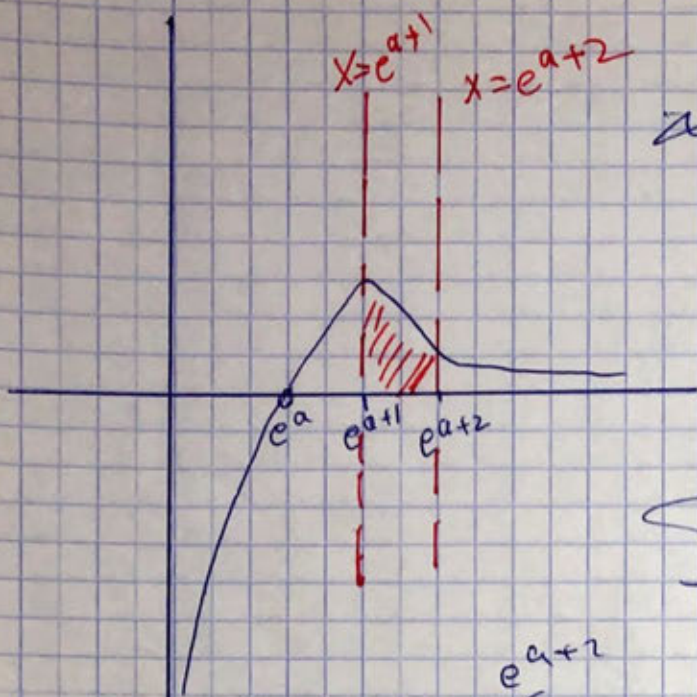 x=e^{a+1}
x=e^{a+2}
e^a e^{a+1} e^{a+2}
e^{a+2}